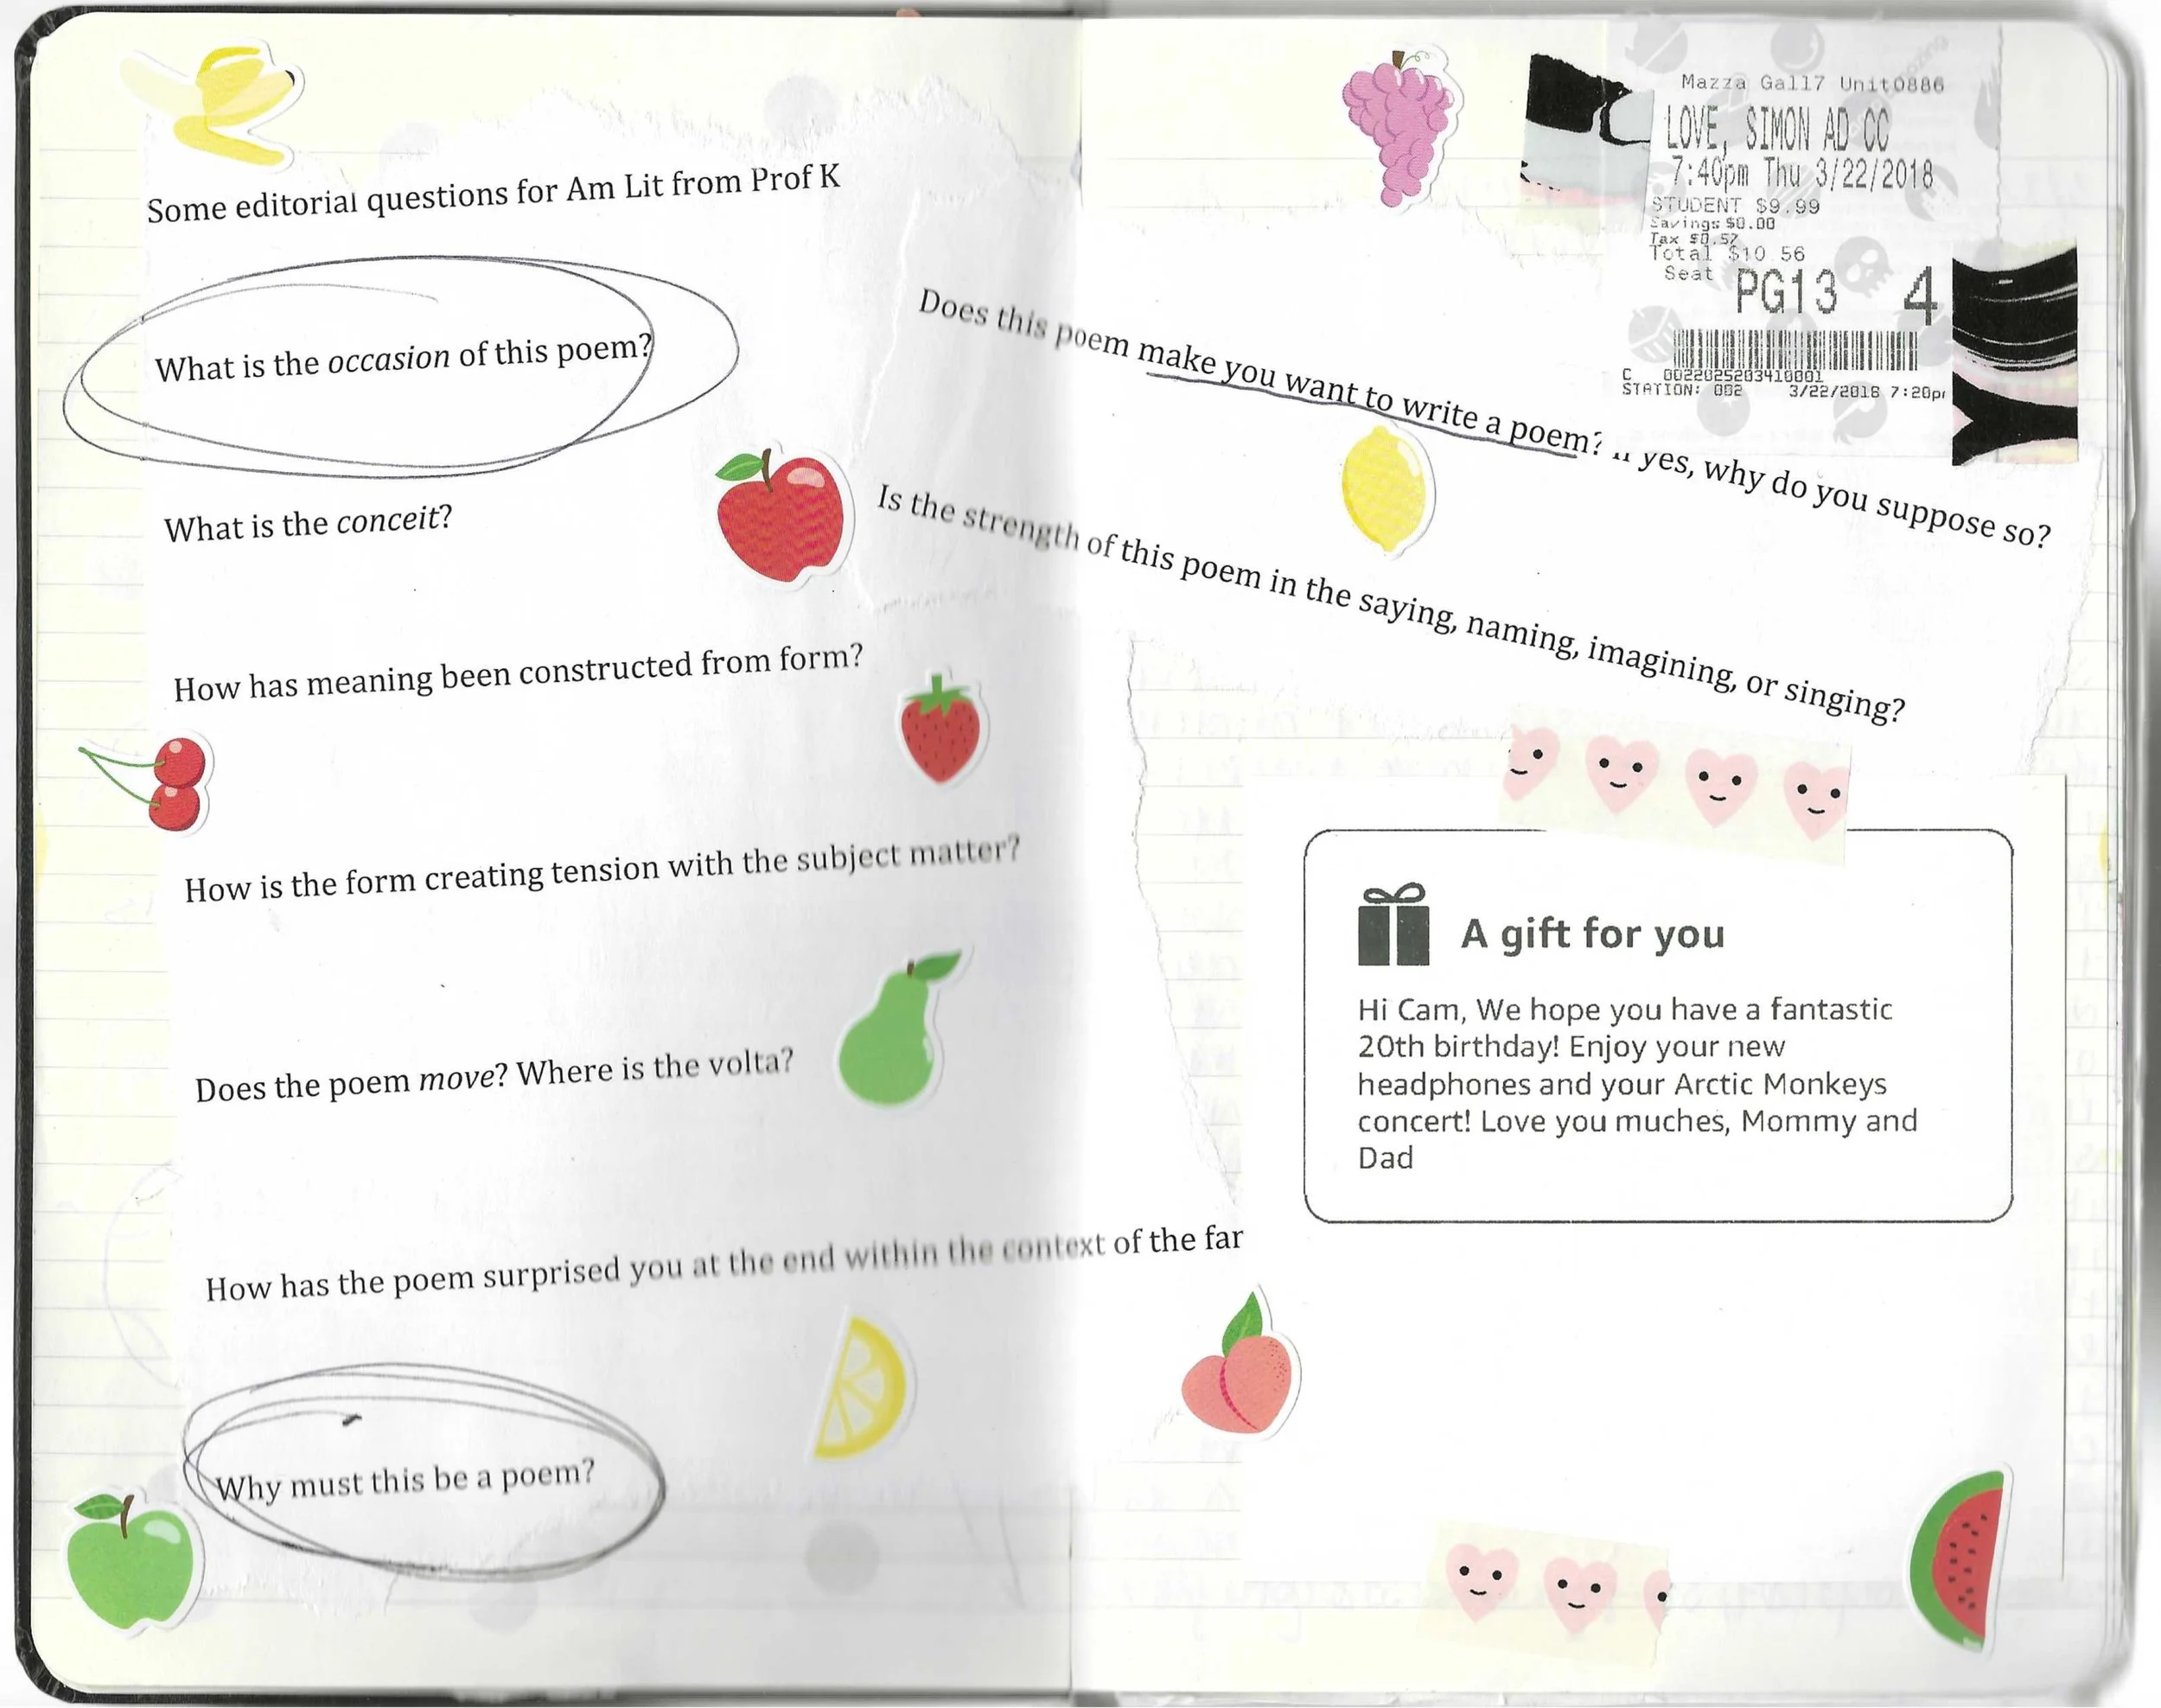 Some editorial questions for Am Lit from Prof K
What is the occasion of this poem?
What is the conceit?
How has meaning been constructed from form?
How is the form creating tension with the subject matter?
Does the poem move? Where is the volta?
How has the poem surprised you at the end within the context of the far
Why must this be a poem?
Mazza Gall7 Unit0886
LOVE, SIMON AD CC
7:40pm Thu 3/22/2018
STUDENT $9.99
Savings $0.00
Tax $0.57
Total $10.56
Seat PG13 4
C 0022025203410001
STATION: 002 3/22/2018 7:20p
Does this poem make you want to write a poem? yes, why do you suppose so?
Is the strength of this poem in the saying, naming, imagining, or singing?
A gift for you
Hi Cam, We hope you have a fantastic
20th birthday! Enjoy your new
headphones and your Arctic Monkeys
concert! Love you muches, Mommy and
Dad